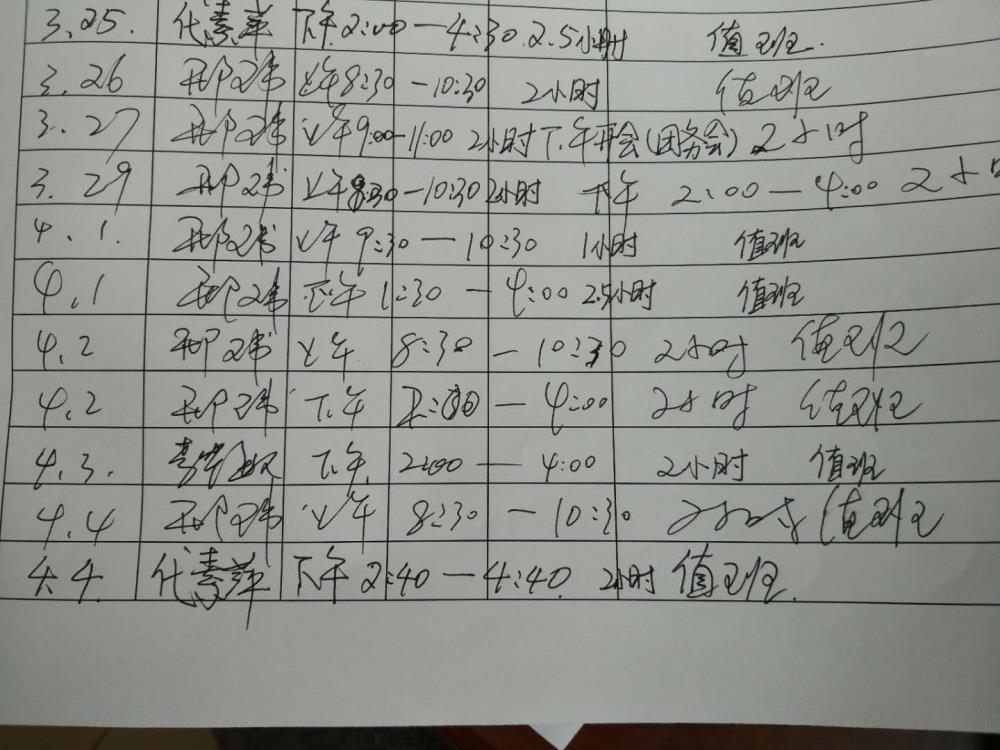 3.25. 代素萍 下午2:00—4:30 2.5小时 值班.
3.26 上午8:30—10:30 2小时 值班
3.27 上午9:00-11:00 2小时 下午开会(团务会) 2小时
3.29 上午8:30—10:30 2小时 下午 2:00—4:00 2小时
4.1. 上午9:30—10:30 1小时 值班
4.1 下午1:30—4:00 2.5小时 值班
4.2 上午 8:30—10:30 2小时 值班
4.2 下午 2:00—4:00 2小时 值班
4.3. 下午. 2:00—4:00 2小时 值班
4.4 上午 8:30—10:30 2小时 值班
4.4 代素萍 下午2:40—4:40. 2小时 值班.